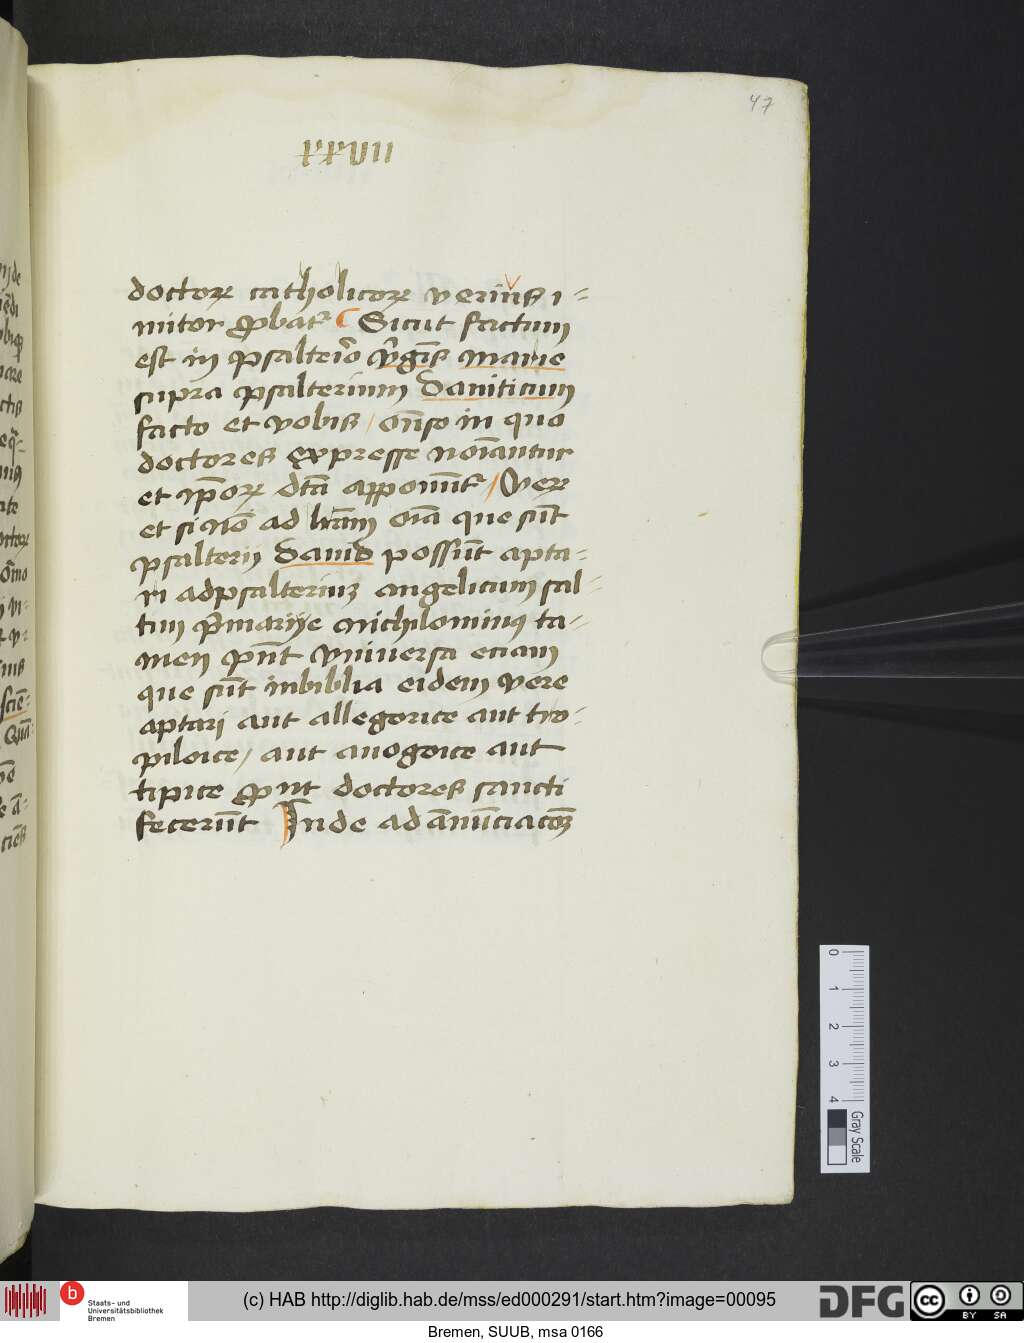 47
xxvii
doctorꝝ catholicorꝝ verius i-
mitor ꝓbatr̄ Sicut factum
est in psalterio v̄gīs marie
supra psalterium Dauiticum
facto et vobis / oñso in quo
doctores expresse noīantur
et ip̄orꝝ dc̄ta apponūtr̄ / Verꝝ
et si nō ad lr̄am oīa que sūt
psalterij Dauid possūt apta-
ri ad psalteriuꝫ angelicum sal-
tim p̄marije nichilominꝰ ta-
men pn̄t vniuersa eciam
que sūt in biblia eidem vere
aptari aut allegorice aut tro-
piloice / aut anogoice aut
tipice ꝓut doctores sancti
fecerūt Inde ad ānūciacōeꝫ
0 1 2 3 4
Gray Scale
b
Staats- und
Universitätsbibliothek
Bremen
(c) HAB http://diglib.hab.de/mss/ed000291/start.htm?image=00095
DFG
cc
BY SA
Bremen, SUUB, msa 0166